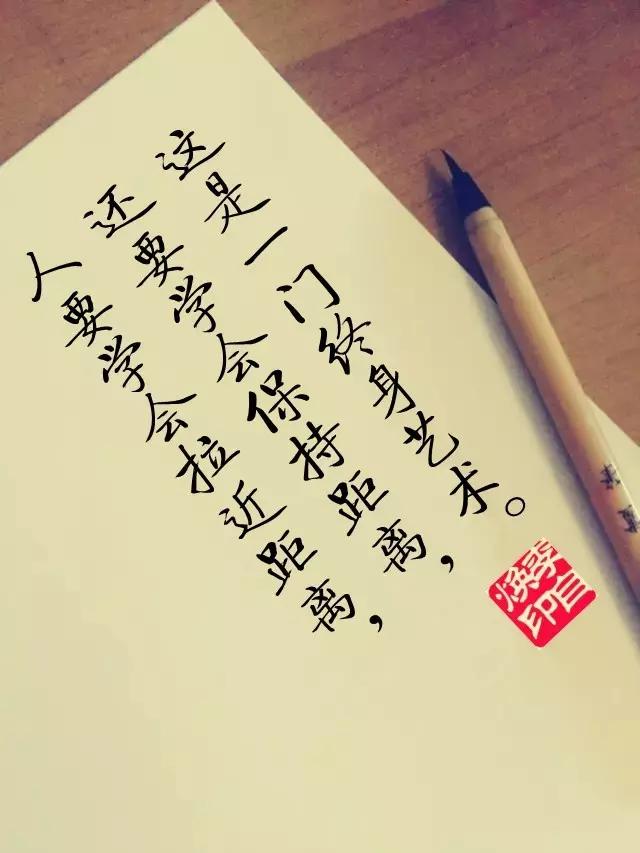 人要学会拉近距离，
还要学会保持距离，
这是一门终身艺术。